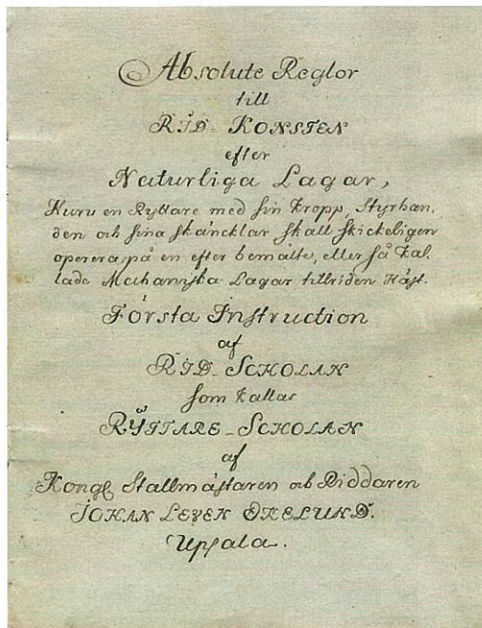 Absolute Reglor
till
RID-KONSTEN
efter
Naturliga Lagar,
Huru en Ryttare med sin kropp, Styrhan,
den och sina skäncklar skall skickeligen
operera, på en efter bemälte, eller så kal,
lade Mechaniska Lagar tillriden Häst.
Första Instruction
af
RID-SCHOLAN
som kallas
RYTTARE-SCHOLAN
af
Kongl Stallmästaren och Riddaren
JOHAN LEVEN EKELUND.
Upsala.